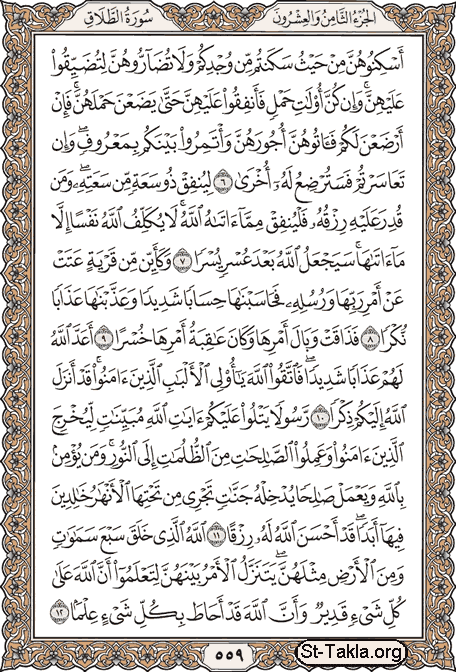 الجزء الثامن والعشرون
سورة الطلاق
أَسْكِنُوهُنَّ مِنْ حَيْثُ سَكَنتُم مِّن وُجْدِكُمْ وَلَا تُضَآرُّوهُنَّ لِتُضَيِّقُوا۟
عَلَيْهِنَّ ۚ وَإِن كُنَّ أُو۟لَٰتِ حَمْلٍ فَأَنفِقُوا۟ عَلَيْهِنَّ حَتَّىٰ يَضَعْنَ حَمْلَهُنَّ ۚ فَإِنْ
أَرْضَعْنَ لَكُمْ فَـَٔاتُوهُنَّ أُجُورَهُنَّ ۖ وَأْتَمِرُوا۟ بَيْنَكُم بِمَعْرُوفٍ ۖ وَإِن
تَعَاسَرْتُمْ فَسَتُرْضِعُ لَهُۥٓ أُخْرَىٰ ٦ لِيُنفِقْ ذُو سَعَةٍ مِّن سَعَتِهِۦ ۖ وَمَن
قُدِرَ عَلَيْهِ رِزْقُهُۥ فَلْيُنفِقْ مِمَّآ ءَاتَىٰهُ ٱللَّهُ ۚ لَا يُكَلِّفُ ٱللَّهُ نَفْسًا إِلَّا
مَآ ءَاتَىٰهَا ۚ سَيَجْعَلُ ٱللَّهُ بَعْدَ عُسْرٍ يُسْرًا ٧ وَكَأَيِّن مِّن قَرْيَةٍ عَتَتْ
عَنْ أَمْرِ رَبِّهَا وَرُسُلِهِۦ فَحَاسَبْنَٰهَا حِسَابًا شَدِيدًا وَعَذَّبْنَٰهَا عَذَابًا
نُّكْرًا ٨ فَذَاقَتْ وَبَالَ أَمْرِهَا وَكَانَ عَٰقِبَةُ أَمْرِهَا خُسْرًا ٩ أَعَدَّ ٱللَّهُ
لَهُمْ عَذَابًا شَدِيدًا ۖ فَٱتَّقُوا۟ ٱللَّهَ يَٰٓأُو۟لِى ٱلْأَلْبَٰبِ ٱلَّذِينَ ءَامَنُوا۟ ۚ قَدْ أَنزَلَ
ٱللَّهُ إِلَيْكُمْ ذِكْرًا ١٠ رَّسُولًا يَتْلُوا۟ عَلَيْكُمْ ءَايَٰتِ ٱللَّهِ مُبَيِّنَٰتٍ لِّيُخْرِجَ
ٱلَّذِينَ ءَامَنُوا۟ وَعَمِلُوا۟ ٱلصَّٰلِحَٰتِ مِنَ ٱلظُّلُمَٰتِ إِلَى ٱلنُّورِ ۚ وَمَن يُؤْمِنۢ
بِٱللَّهِ وَيَعْمَلْ صَٰلِحًا يُدْخِلْهُ جَنَّٰتٍ تَجْرِى مِن تَحْتِهَا ٱلْأَنْهَٰرُ خَٰلِدِينَ
فِيهَآ أَبَدًا ۖ قَدْ أَحْسَنَ ٱللَّهُ لَهُۥ رِزْقًا ١١ ٱللَّهُ ٱلَّذِى خَلَقَ سَبْعَ سَمَٰوَٰتٍ
وَمِنَ ٱلْأَرْضِ مِثْلَهُنَّ يَتَنَزَّلُ ٱلْأَمْرُ بَيْنَهُنَّ لِتَعْلَمُوٓا۟ أَنَّ ٱللَّهَ عَلَىٰ
كُلِّ شَىْءٍ قَدِيرٌ وَأَنَّ ٱللَّهَ قَدْ أَحَاطَ بِكُلِّ شَىْءٍ عِلْمًۢا ١٢
٥٥٩
St-Takla.org